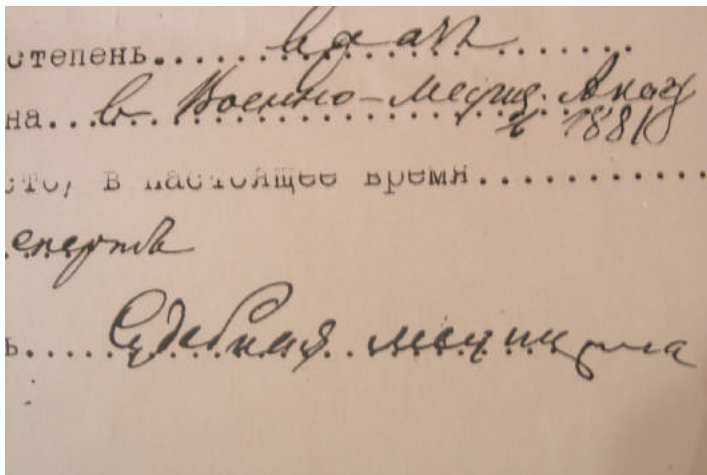 степень.... врач
на... в Военно-медиц. Акад
в 1881
сто, в настоящее время............
.експертъ
ь.... Судебная медицина